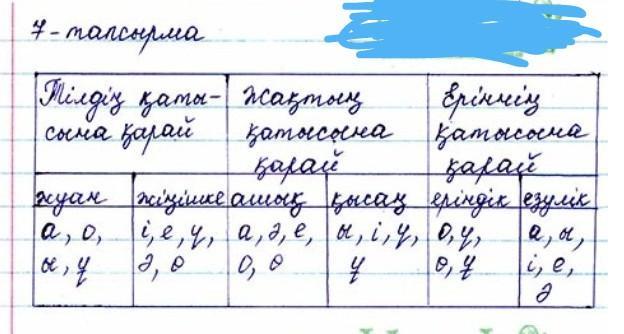 7-тапсырма
Тілдің қаты-
сына қарай
Жақтың
қатысына
қарай
Еріннің
қатысына
қарай
жуан
жіңішке
ашық
қысаң
еріндік
езулік
а, о,
ы, ұ
і, е, ү,
ә, ө
а, ә, е,
о, ө
ы, і, ү,
ұ
о, ү,
ө, ұ
а, ы,
і, е,
ә